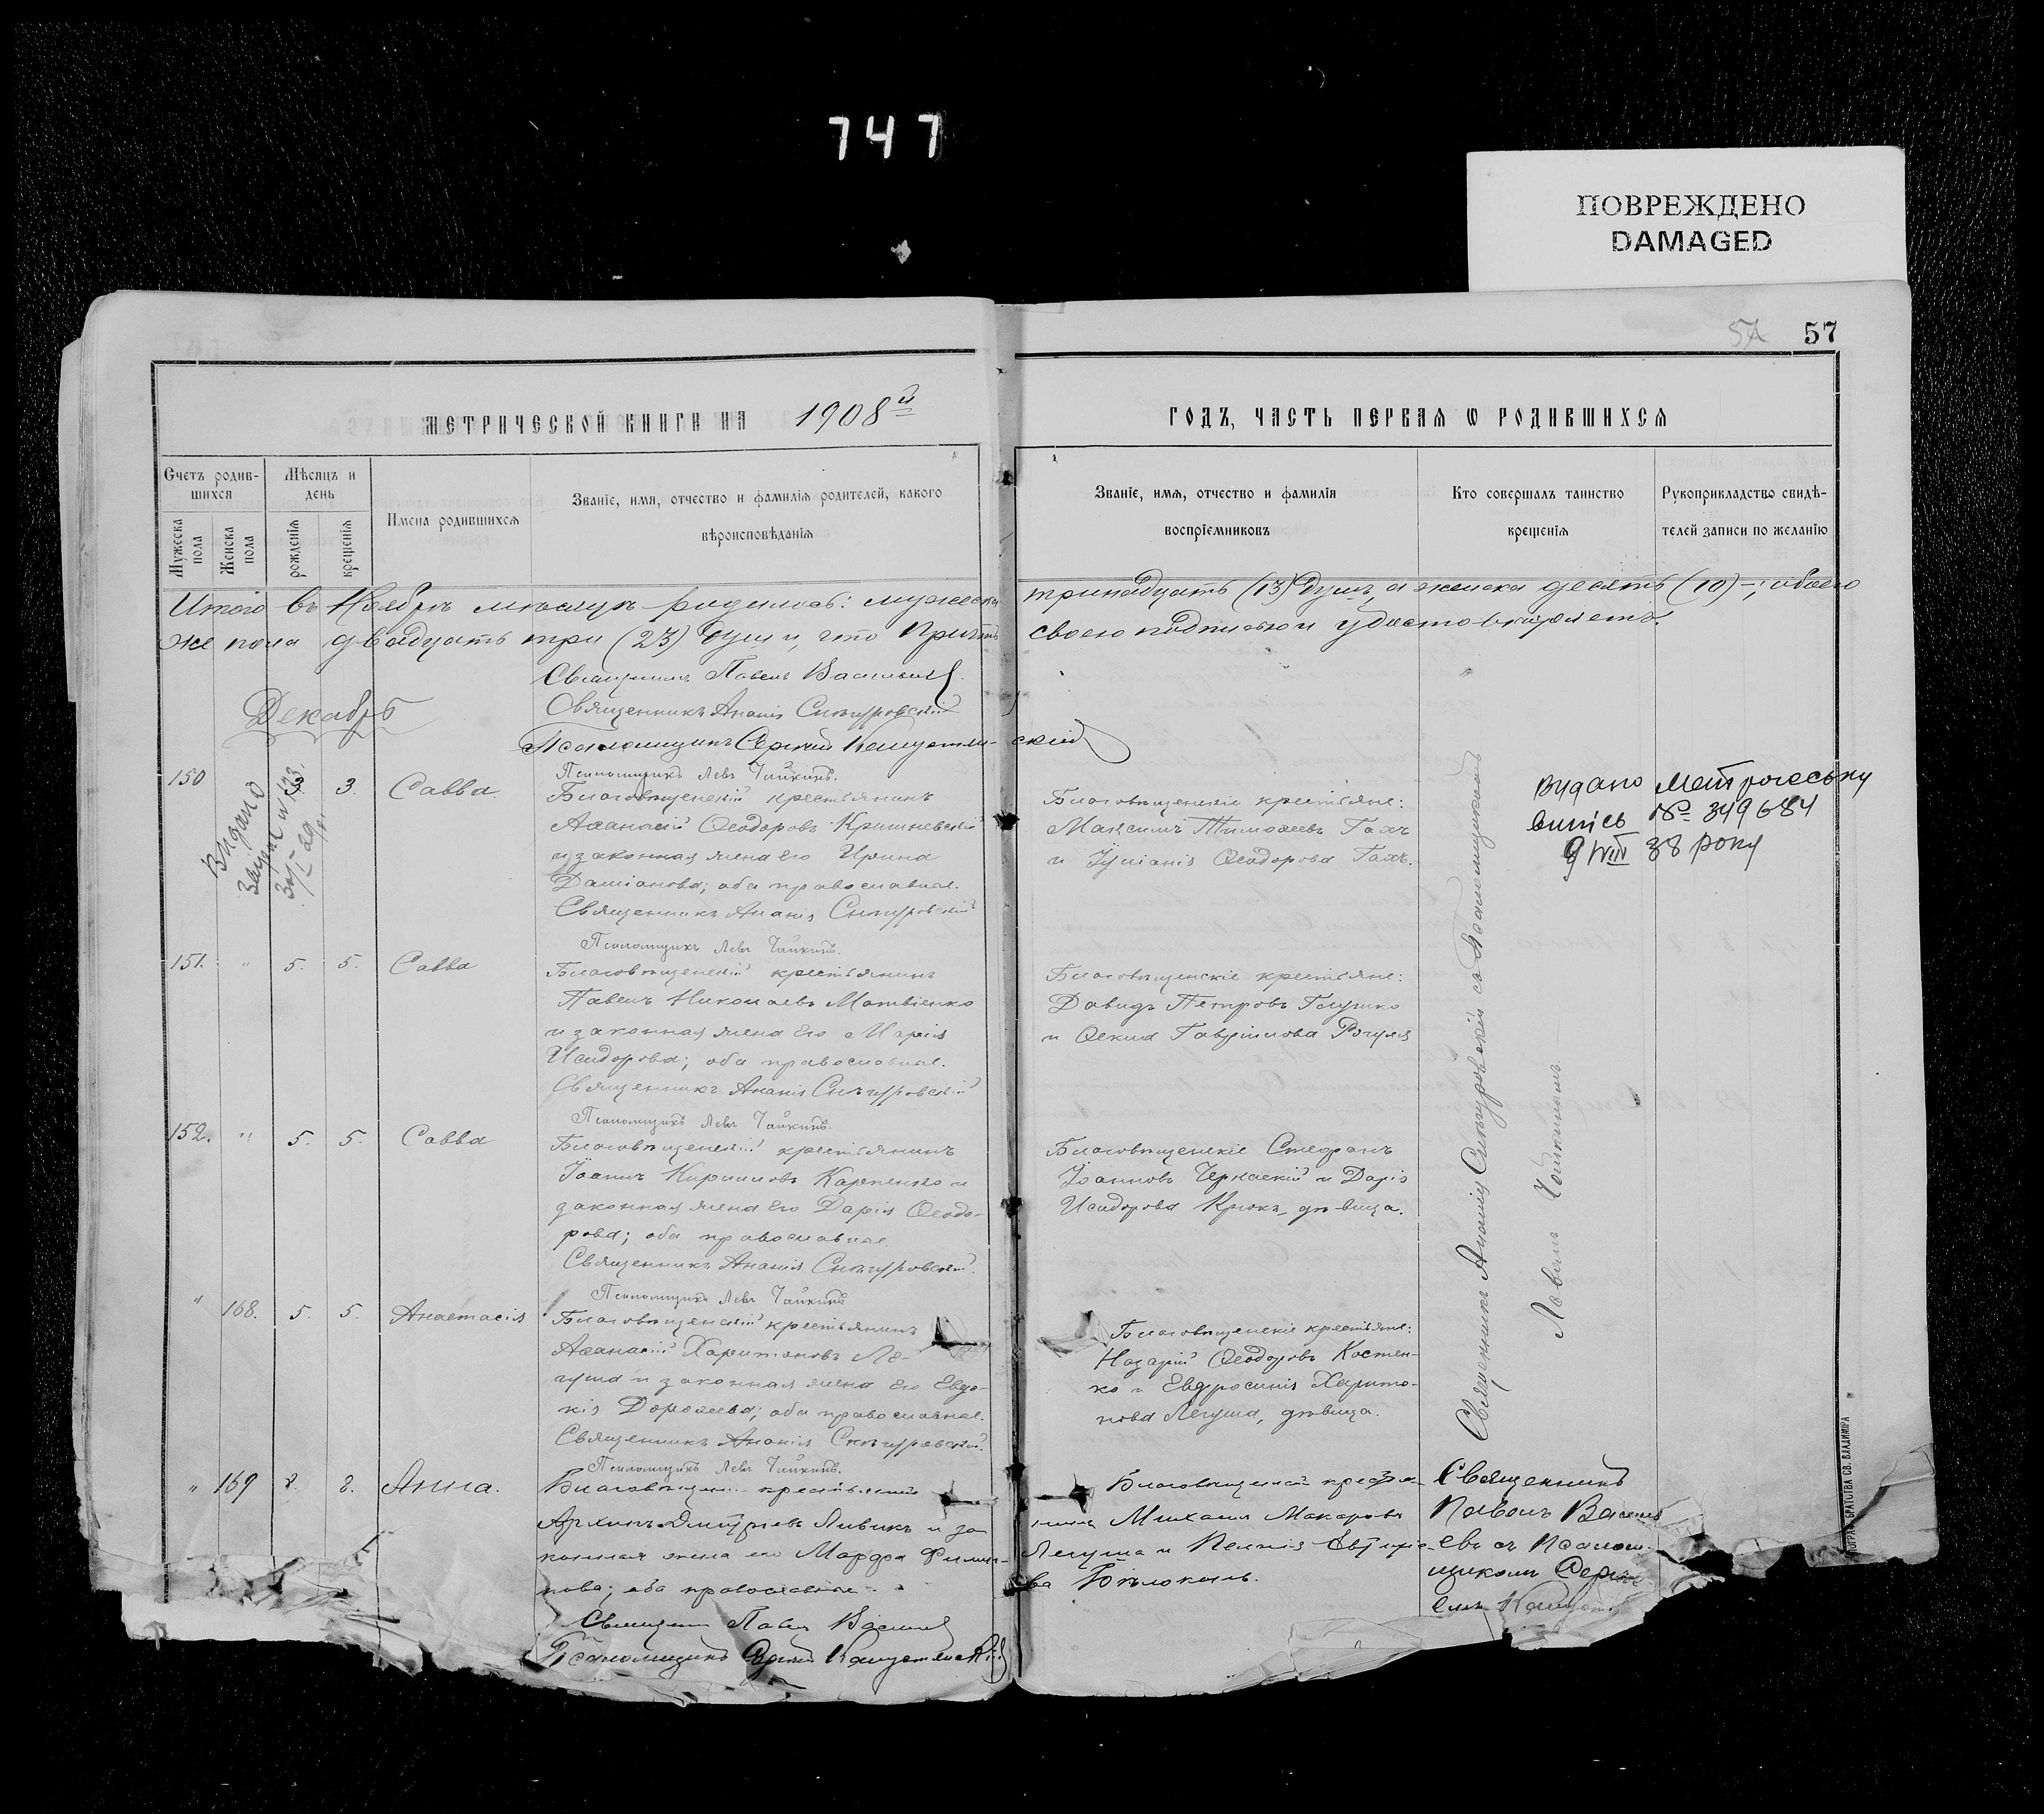 747
ПОВРЕЖДЕНО
DAMAGED
57
57
МЕТРИЧЕСКОЙ КНИГИ НА 1908й
ГОДЪ, ЧАСТЬ ПЕРВАЯ Ѡ РОДИВШИХСЯ
Счетъ родив-
шихся
Мѣсяцъ и
день
Имена родившихся
Званіе, имя, отчество и фамилія родителей, какого
вѣроисповѣданія
Мужеска
пола
Женска
пола
рожденія
крещенія
Званіе, имя, отчество и фамилія
воспріемниковъ
Кто совершалъ таинство
крещенія
Рукоприкладство свидѣ-
телей записи по желанію
Итого въ Ноябрѣ мѣсяцѣ родилось: мужеска тринадцать (13) душъ, а женска десять (10) –; обоего
же пола двадцать три (23) души, что причтъ своею подписью и удостовѣряетъ.
Священникъ Павелъ Васильев
Священникъ Ананія Снѣгуровскій
Псаломщикъ Сергій Капустянскій
Декабрь
Псаломщикъ Левъ Чайкинъ.
150
3
3.
Савва
Благовѣщенскій крестьянинъ
Аѳанасій Ѳеодоровъ Кришневскій
и законная жена его Ирина
Даміанова; оба православные.
Священникъ Ананія Снѣгуровскій
Псаломщикъ Левъ Чайкинъ.
Благовѣщенскіе крестьяне:
Максимъ Тимоѳеевъ Гахъ
и Іуліанія Ѳеодорова Гахъ.
Видано
Видано метрическу
випись № 349684
9/VIII 38 року
151. " 5. 5. Савва
Благовѣщенскій крестьянинъ
Павелъ Николаевъ Матвіенко
и законная жена его Марія
Исидорова; оба православные.
Священникъ Ананія Снѣгуровскій
Псаломщикъ Левъ Чайкинъ.
Благовѣщенскіе крестьяне:
Давидъ Петровъ Глушко
и Ѳекла Гавріилова Рогуля
152. " 5. 5. Савва
Благовѣщенскій крестьянинъ
Іоаннъ Кирилловъ Карпенко и
законная жена его Дарія Ѳеодо-
рова; оба православные.
Священникъ Ананія Снѣгуровскій.
Псаломщикъ Левъ Чайкинъ
Благовѣщенскіе Стефанъ
Іоанновъ Черкаскій и Дарія
Исидорова Крюкъ, дѣвица.
" 168. 5. 5. Анастасія
Благовѣщенскій крестьянинъ
Аѳанасій Харитоновъ Ле-
гуша и законная жена его Евдо-
кія Дороѳеева; оба православные.
Священникъ Ананія Снѣгуровскій.
Псаломщикъ Левъ Чайкинъ.
Благовѣщенскіе крестьяне:
Назарій Ѳеодоровъ Костен-
ко и Евфросинія Харито-
нова Легуша, дѣвица.
Священникъ Ананія Снѣгуровскій съ Псаломщикомъ
Львомъ Чайкинымъ.
" 169 8. 8. Анна.
Архипъ Дмитріевъ Ливикъ и за
конная жена его Марфа Филип-
пова; оба православные
Священникъ Павелъ Васильев
Псаломщикъ Сергій Капустянскій
Михаилъ Макаровъ
Легуша и Пелагія
Бѣлоконь.
Священникъ
Павелъ Василь
евъ съ Псалом-
щикомъ Серги-
емъ
БРАТСТВА СВ. ВЛАДИМІРА